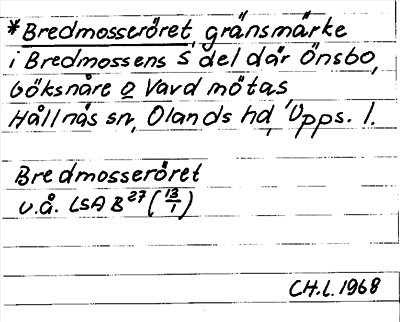 *Bredmosseröret, gränsmärke
i Bredmossens S del där Önsbo,
Göksnåre o Vavd mötas
Hållnäs sn, Olands hd, Upps. l.
Bredmosseröret
u.å. LSA B 27 (13/1)
C.H.L. 1968